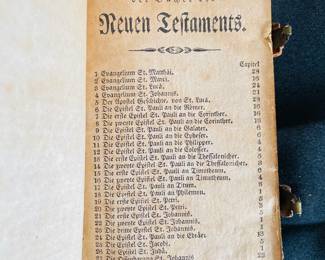 der Bücher des
Neuen Testaments.
Capitel
1 Evangelium St. Matthäi, 28
2 Evangelium St. Marci, 16
3 Evangelium St. Lucä, 24
4 Evangelium St. Johannis, 21
5 Der Apostel Geschichte, von St. Lucä, 28
6 Die Epistel St. Pauli an die Römer, 16
7 Die erste Epistel St. Pauli an die Corinther, 16
8 Die zweyte Epistel St. Pauli an die Corinther, 13
9 Die Epistel St. Pauli an die Galater, 6
10 Die Epistel St. Pauli an die Epheser, 6
11 Die Epistel St. Pauli an die Philipper, 4
12 Die Epistel St. Pauli an die Colosser, 4
13 Die erste Epistel St. Pauli an die Thessalonicher, 5
14 Die zweyte Epistel St. Pauli an die Thessalonicher, 3
15 Die erste Epistel St. Pauli an Timotheum, 6
16 Die zweyte Epistel St. Pauli an Timotheum, 4
17 Die Epistel St. Pauli an Titum, 3
18 Die Epistel St. Pauli an Philemon, 1
19 Die erste Epistel St. Petri, 5
20 Die zweyte Epistel St. Petri, 3
21 Die erste Epistel St. Johannis, 5
22 Die zweyte Epistel St. Johannis, 1
23 Die dritte Epistel St. Johannis, 1
24 Die Epistel St. Pauli an die Ebräer, 13
25 Die Epistel St. Jacobi, 5
26 Die Epistel St. Judä, 1
27 Die Offenbarung St. Johannis 22